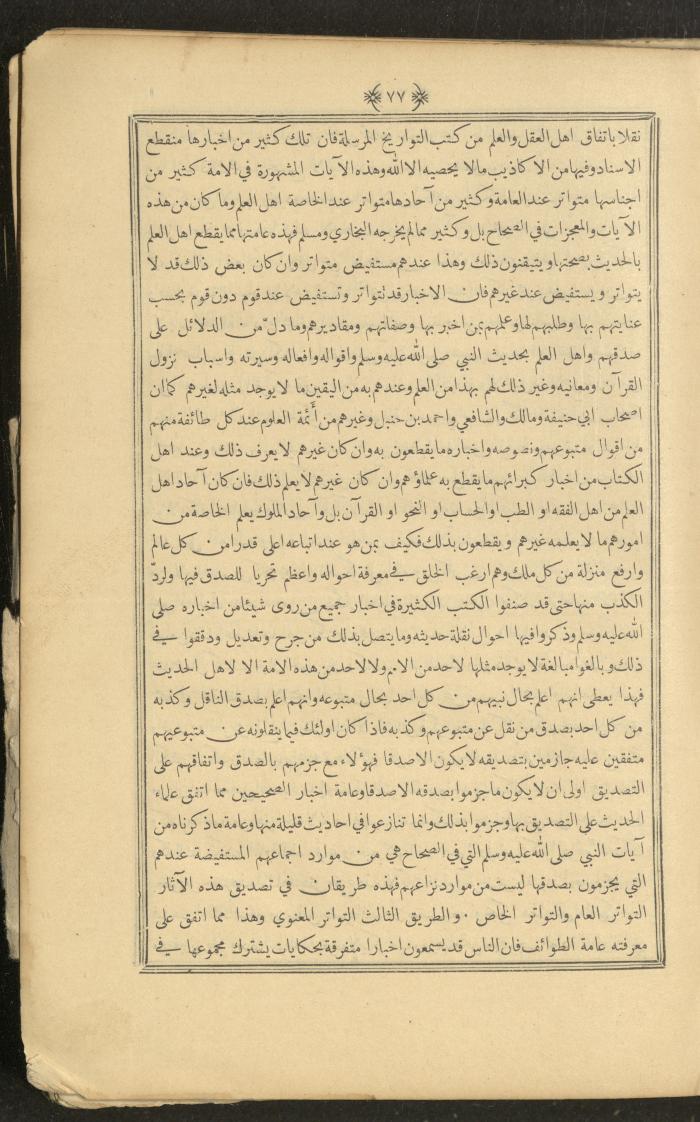 ٧٧
نقلا باتفاق اهل العقل والعلم من كتب التواريخ المرسلة فان تلك كثير من اخبارها منقطع
الاسناد وفيها من الاكاذيب مالا يحصيه الا الله وهذه الآيات المشهورة في الامة كثير من
اجناسها متواتر عند العامة وكثير من آحادها متواتر عند الخاصة اهل العلم وما كان من هذه
الآيات والمعجزات في الصحاح بل وكثير ممالم يخرجه البخاري ومسلم فهذه عامتها مما يقطع اهل العلم
بالحديث بصحتها ويتيقنون ذلك وهذا عندهم مستفيض متواتر وان كان بعض ذلك قد لا
يتواتر ويستفيض عند غيرهم فان الاخبار قد تتواتر وتستفيض عند قوم دون قوم بحسب
عنايتهم بها وطلبهم لها وعلمهم بمن اخبر بها وصفاتهم ومقاديرهم وما دل من الدلائل على
صدقهم واهل العلم بحديث النبي صلى الله عليه وسلم واقواله وافعاله وسيرته واسباب نزول
القرآن ومعانيه وغير ذلك لهم بهذا من العلم وعندهم به من اليقين ما لا يوجد مثله لغيرهم كما ان
اصحاب ابي حنيفة ومالك والشافعي واحمد بن حنبل وغيرهم من أئمة العلوم عند كل طائفة منهم
من اقوال متبوعهم ونصوصه واخباره ما يقطعون به وان كان غيرهم لا يعرف ذلك وعند اهل
الكتاب من اخبار كبرائهم ما يقطع به علماؤهم وان كان غيرهم لا يعلم ذلك فان كان آحاد اهل
العلم من اهل الفقه او الطب او الحساب او النحو او القرآن بل وآحاد الملوك يعلم الخاصة من
امورهم ما لا يعلمه غيرهم ويقطعون بذلك فكيف بمن هو عند اتباعه اعلى قدرا من كل عالم
وارفع منزلة من كل ملك وهم ارغب الخلق في معرفة احواله واعظم تحريا للصدق فيها ولردّ
الكذب منها حتى قد صنفوا الكتب الكثيرة في اخبار جميع من روى شيئا من اخباره صلى
الله عليه وسلم وذكروا فيها احوال نقلة حديثه وما يتصل بذلك من جرح وتعديل ودققوا في
ذلك وبالغوا مبالغة لا يوجد مثلها لاحد من الامم ولا لاحد من هذه الامة الا لاهل الحديث
فهذا يعطى انهم اعلم بحال نبيهم من كل احد بحال متبوعه وانهم اعلم بصدق الناقل وكذبه
من كل احد بصدق من نقل عن متبوعهم وكذبه فاذا كان اولئك فيما ينقلونه عن متبوعيهم
متفقين عليه جازمين بتصديقه لا يكون الاصدقا فهؤلاء مع جزمهم بالصدق واتفاقهم على
التصديق اولى ان لا يكون ما جزموا بصدقه الا صدقا وعامة اخبار الصحيحين مما اتفق علماء
الحديث على التصديق بها وجزموا بذلك وانما تنازعوا في احاديث قليلة منها وعامة ما ذكرناه من
آيات النبي صلى الله عليه وسلم التي في الصحاح هي من موارد اجماعهم المستفيضة عندهم
التي يجزمون بصدقها ليست من موارد نزاعهم فهذه طريقان في تصديق هذه الآثار
التواتر العام والتواتر الخاص ٠ والطريق الثالث التواتر المعنوي وهذا مما اتفق على
معرفته عامة الطوائف فان الناس قد يسمعون اخبارا متفرقة بحكايات يشترك مجموعها في